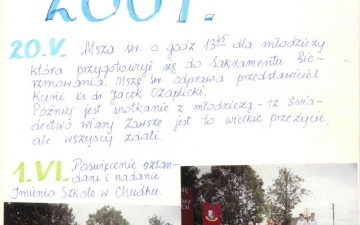 2001.
20.V. Msza św. o godz. 13⁴⁵ dla młodzieży
która przygotowuje się do Sakramentu Bie-
rzmowania. Mszę św. odprawia przedstawiciel
Kurii ks. dr Jacek Czaplicki.
Później jest spotkanie z młodzieżą - tz. świa-
dectwo wiary. Zawsze jest to wielkie przeżycie,
ale wszyscy zdali.
1.VI. Poświęcenie sztan-
daru i nadanie
Imienia Szkole w Chudku.